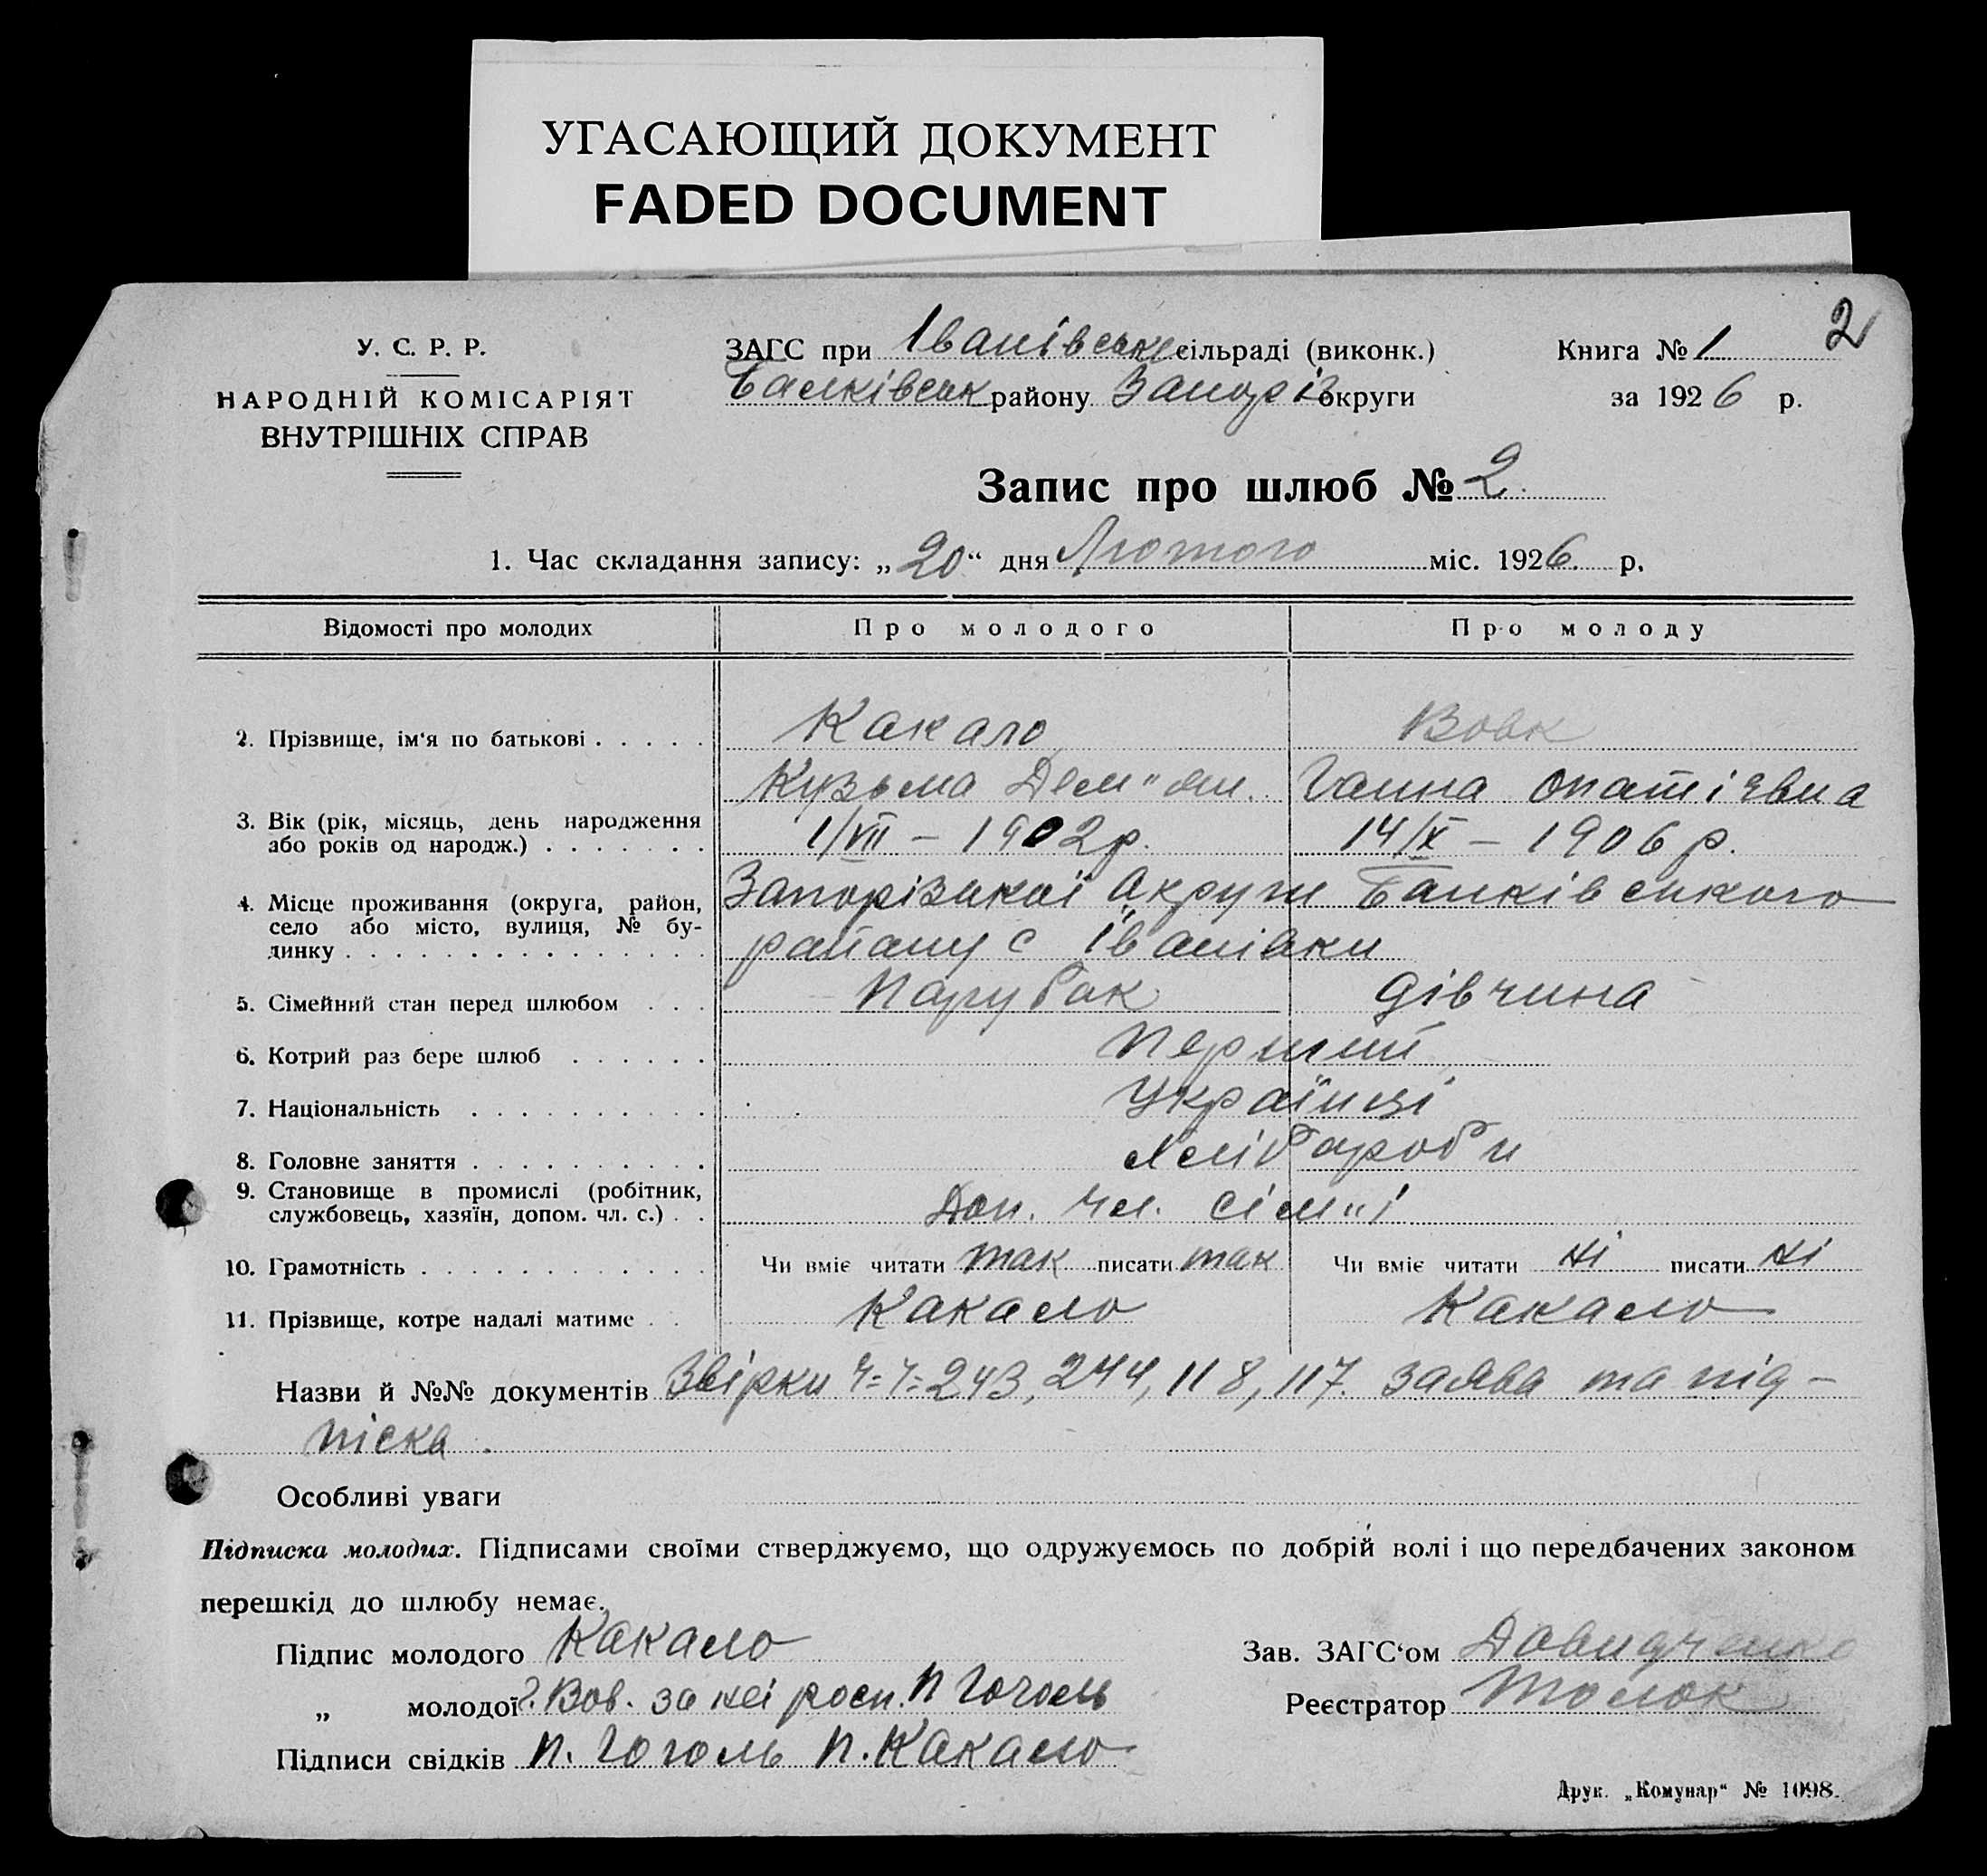 УГАСАЮЩИЙ ДОКУМЕНТ
FADED DOCUMENT
2
У. С. Р. Р.
НАРОДНІЙ КОМІСАРІЯТ
ВНУТРІШНІХ СПРАВ
ЗАГС при Іванівські сільраді (виконк.)
Балківськ району Запоріз округи
Книга № 1
за 1926 р.
Запис про шлюб № 2.
1. Час складання запису: „20“ дня Лютого міс. 1926. р.
Відомості про молодих Про молодого Про молоду
2. Прізвище, ім‘я по батькові . . . . . Какало Вовк
Кузьма Дем"ян. Ганна Опатієвна
3. Вік (рік, місяць, день народження
або років од народж.) . . . . . . . 1/VII – 1902р. 14/X – 1906 р.
4. Місце проживання (округа, район,
село або місто, вулиця, № бу-
динку . . . . . . . . . . . . . . . .
Запорізької Округи Балківського
району с Іванівки
5. Сімейний стан перед шлюбом . . . Парубок дівчина
6. Котрий раз бере шлюб . . . . . . Перший
7. Національність . . . . . . . . . . Українці
8. Головне заняття . . . . . . . . . . Хліборобл
9. Становище в промислі (робітник,
службовець, хазяїн, допом. чл. с.) . . Доп. чл. сім"ї
10. Грамотність . . . . . . . . . . . . Чи вміє читати так писати так Чи вміє читати ні писати ні
11. Прізвище, котре надалі матиме . . Какало Какало
Назви й №№ документів Звірки ч=ч=243, 244, 118, 117. заява та під-
піска.
Особливі уваги
Підписка молодих. Підписами своїми стверджуємо, що одружуємось по добрій волі і що передбачених законом
перешкід до шлюбу немає.
Підпис молодого Какало
„ молодої Г. Вов. за неї росп. П Гоголь
Підписи свідків П. Гоголь П. Какало
Зав. ЗАГС‘ом Давидченко
Реєстратор Молок
Друк. „Комунар“ № 1098.